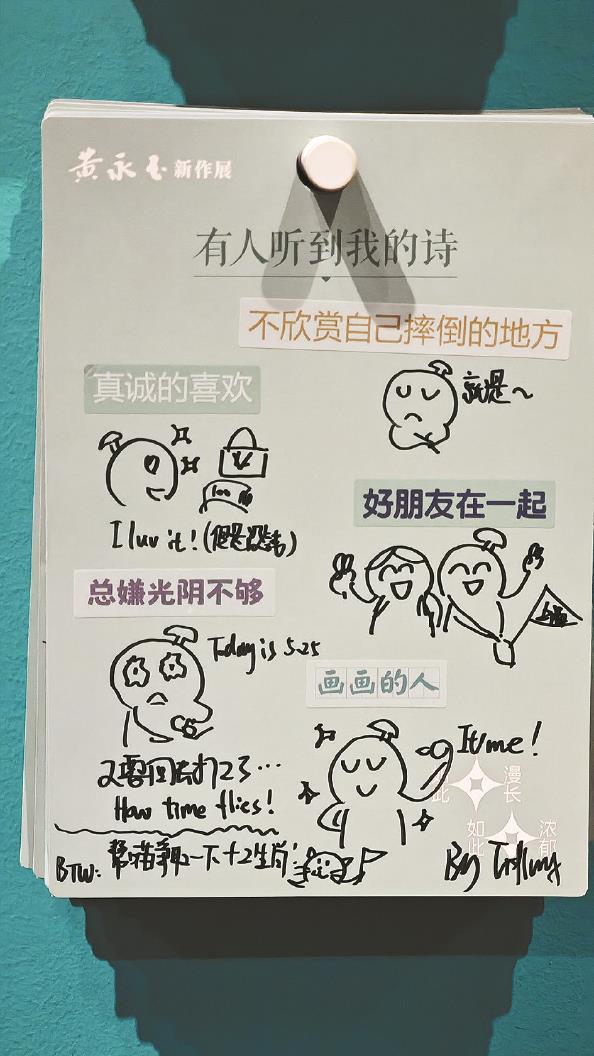 黄永玉新作展
有人听到我的诗
不欣赏自己摔倒的地方
真诚的喜欢
就是~
100
I luv it! (但是没钱)
好朋友在一起
总嫌光阴不够
Today is 5.25
画画的人
It's me!
又要回去打工了…
How time flies!
漫长
如此
浓郁
如此
BTW: 帮猫争取一下十二生肖!
By